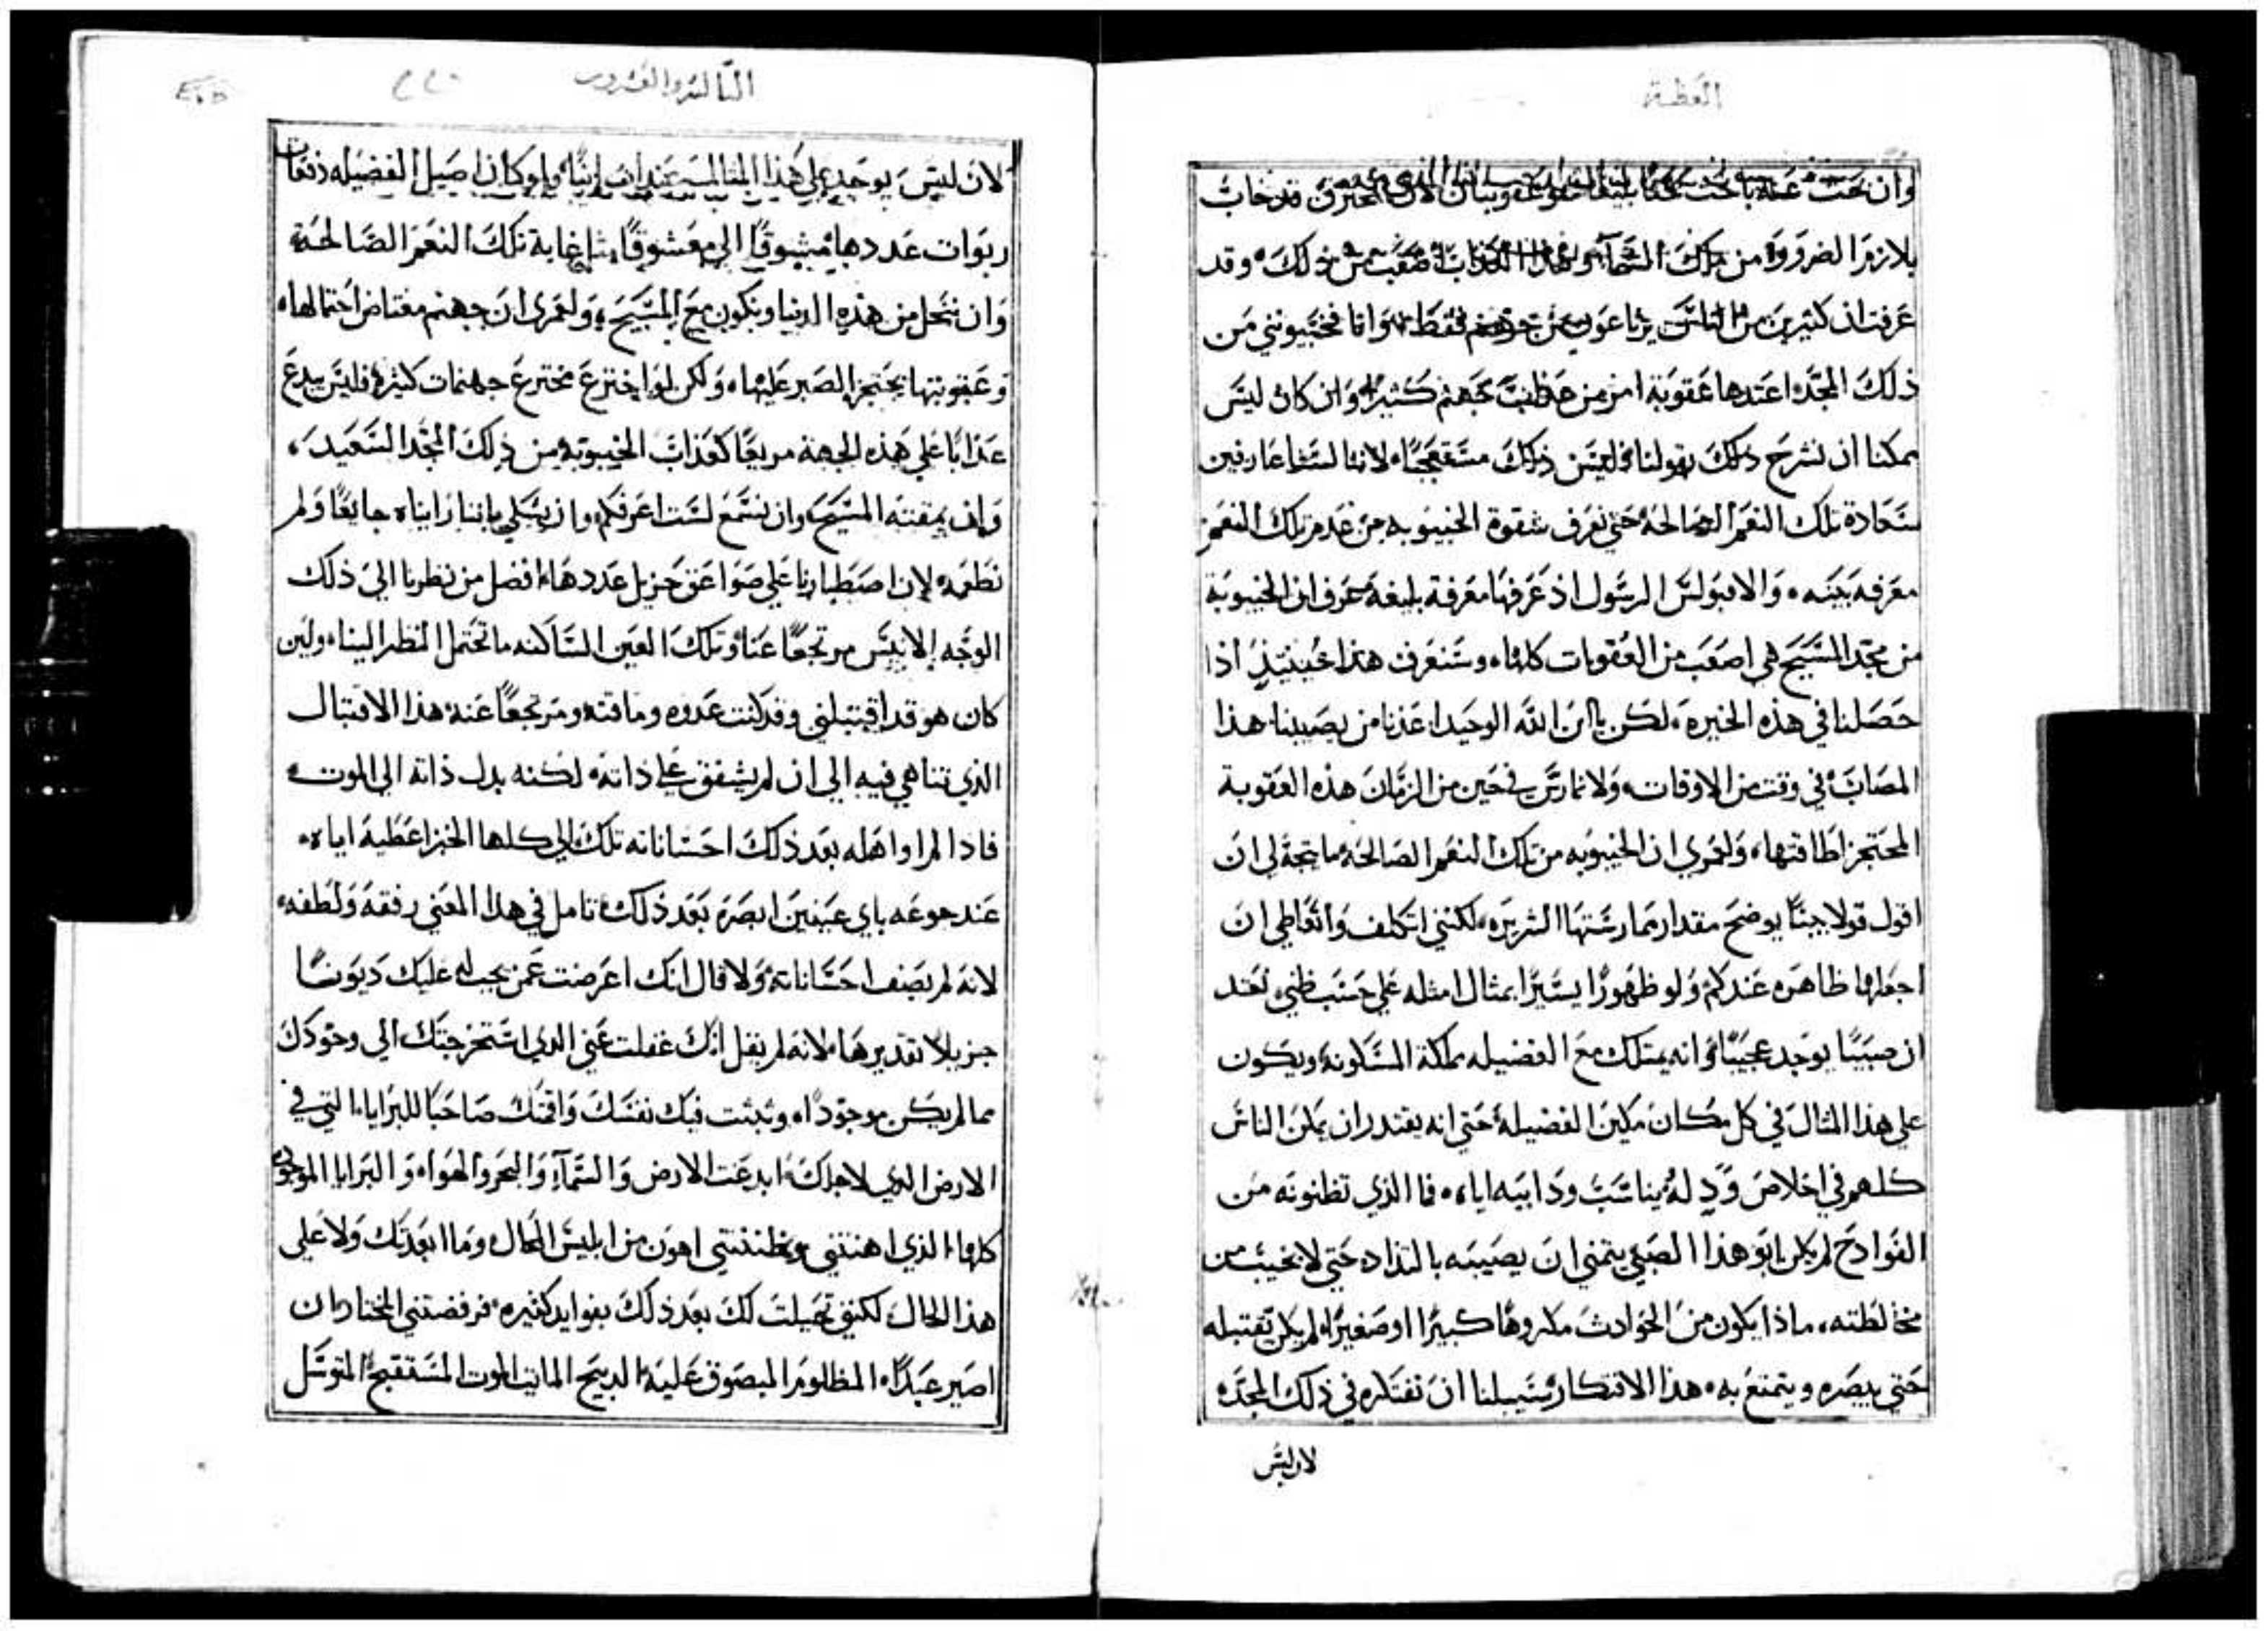 العظة
وان بحث عنه باحث بحثا بليغا عقوبتان لان المحترق قد خاب
بلازم الضرورة من ملك السماء وهذا العذاب اصعب من ذلك وقد
عرفت ان كثيرين من الناس يرتاعون من جهنم فقط وانا فخيبوتني من
ذلك المجد اعتدها عقوبة امر من عذاب جهنم كثيرا وان كان ليس
ممكنا ان نشرح ذلك بقولنا فليس ذلك مستعجبا لاننا لسنا عارفين
سعادة تلك النعم الصالحة حتي نعرف شقوة الخيبوبه من عدم تلك النعم
معرفه بينه والا فبولس الرسول اذ عرفها معرفة بليغة عرف ان الخيبوبة
من مجد المسيح هي اصعب من العقوبات كلها وسنعرف هذا حينيذ اذا
حصلنا في هذه الخبرة لكن يا ابن الله الوحيد اعذنا من يصيبنا هذا
المصاب في وقت من الاوقات ولا نمارس في حين من الزمان هذه العقوبة
المحتجز اطاقتها ولعمري ان الخيبوبه من تلك النعم الصالحة ما يتجه لي ان
اقول قولا بينا يوضح مقدار ممارستها الشريره لكنني اتكلف واتعاطي ان
اجعلها ظاهره عندكم ولو ظهورا يسيرا بمثال امثله علي حسب ظني لعند
ان صبيا يوجد عجيبا وانه يمتلك مع الفضيله مملكة المسكونة ويكون
علي هذا المثال في كل مكان مكين الفضيلة حتي انه يقتدر ان يمكن الناس
كلهم في اخلاص ود له يناسب ود ابيه اياه فما الذي تظنونه من
الفوادح لم يكن ابو هذا الصبي يتمني ان يصيبه بالتذاذ حتي لا يخيب من
مخالطته ماذا يكون من الحوادث مكروها كبيرا او صغيرا لم يكن يقتبله
حتي يبصره ويتمتع به هذا الافتكار سبيلنا ان نفتكره في ذلك المجد
لان ليس
الثالثه والعشرون
لان ليس يوجد علي هذا المثال ولو كان اصيل الفضيله دفعات
ربوات عددها مشوقا الي معشوقا مثل غاية تلك النعم الصالحة
وان ننحل من هذه الدنيا ونكون مع المسيح ولعمري ان جهنم معتاض احتمالها
وعقوبتها يحتجز الصبر عليها ولكن لو اخترع مخترع جهنمات كثيرة فليس يبدع
عذابا علي هذه الجهة مريعا كعذاب الخيبوبة من ذلك المجد السعيد
وان يمقتنه المسيح وان نسمع لست اعرفكم وان يشكي باننا رايناه جايعا ولم
نطعمه لان اصطبارنا علي صواعق جزيل عددها افضل من نظرنا الي ذلك
الوجه الانيس مرتجعا عنا وتلك العين الساكنه ما تحتمل النظر الينا ولين
كان هو قد اقتبلني وقد كنت عدوه وماقته ومرتجعا عنه هذا الاقتبال
الذي تناهي فيه الي ان لم يشفق علي ذاته لكنه بدل ذاته الي الموت
فاذا لم اواهله بعد ذلك احساناته تلك الي كلها الخبز اعطيه اياه
عند جوعه باي عينين ابصره بعد ذلك تامل في هذا المعني رفقه ولطفه
لانه لم يصف احساناته ولا قال انك اعرضت عمن يجب له عليك ديونا
جزيلا تقديرها لانه لم يقل انك غفلت عني الذي استخرجتك الي وجودك
مما لم يكن موجودا ونبثت فيك نفسك واقمتك صاحبا للبرايا التي في
الارض الذي لاجلك ابدعت الارض والسماء والبحر والهوا والبرايا الموجوده
كلها الذي اهنتني وظننتني اهون من ابليس المحال وما ابعدتك ولا علي
هذا الحال لكنني تحيلت لك بعد ذلك بفوايد كثيره فرفضتني المختار ان
اصير عبدا المظلوم المبصوق عليه الذبيح المايت الموت المستقبح المتوسل